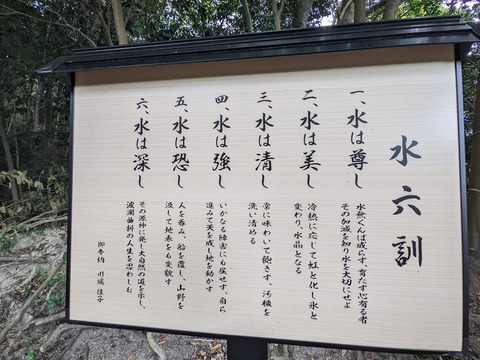 水六訓
一、水は尊し
水無くんば成らず、育たず心有る者
その加減を知り水を大切にせよ
二、水は美し
冷熱に応じて虹と化し氷と
変わり、水晶となる
三、水は清し
常に味わいて飽きず、汚穢を
洗い清める
四、水は強し
いかなる障害にも屈せず、自ら
進みて天を成し地を動かす
五、水は恐し
人を呑み、船を覆し、山野を
浸して地表をも変貌す
六、水は深し
その源神に発し大自然の道を示し、
波瀾曲折の人生を思わしむ
御奉納